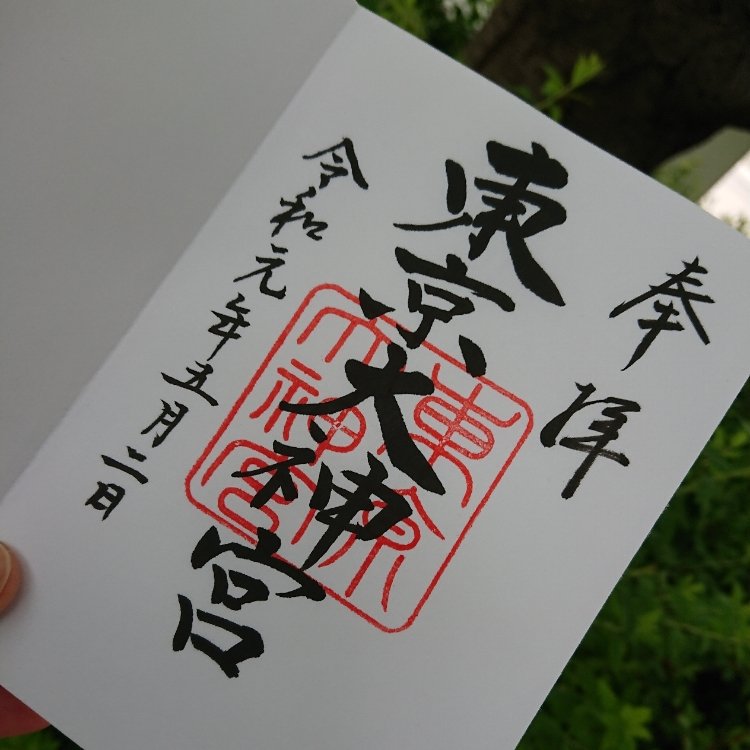 奉拝
東京大神宮
東京大神宮
令和元年五月二日